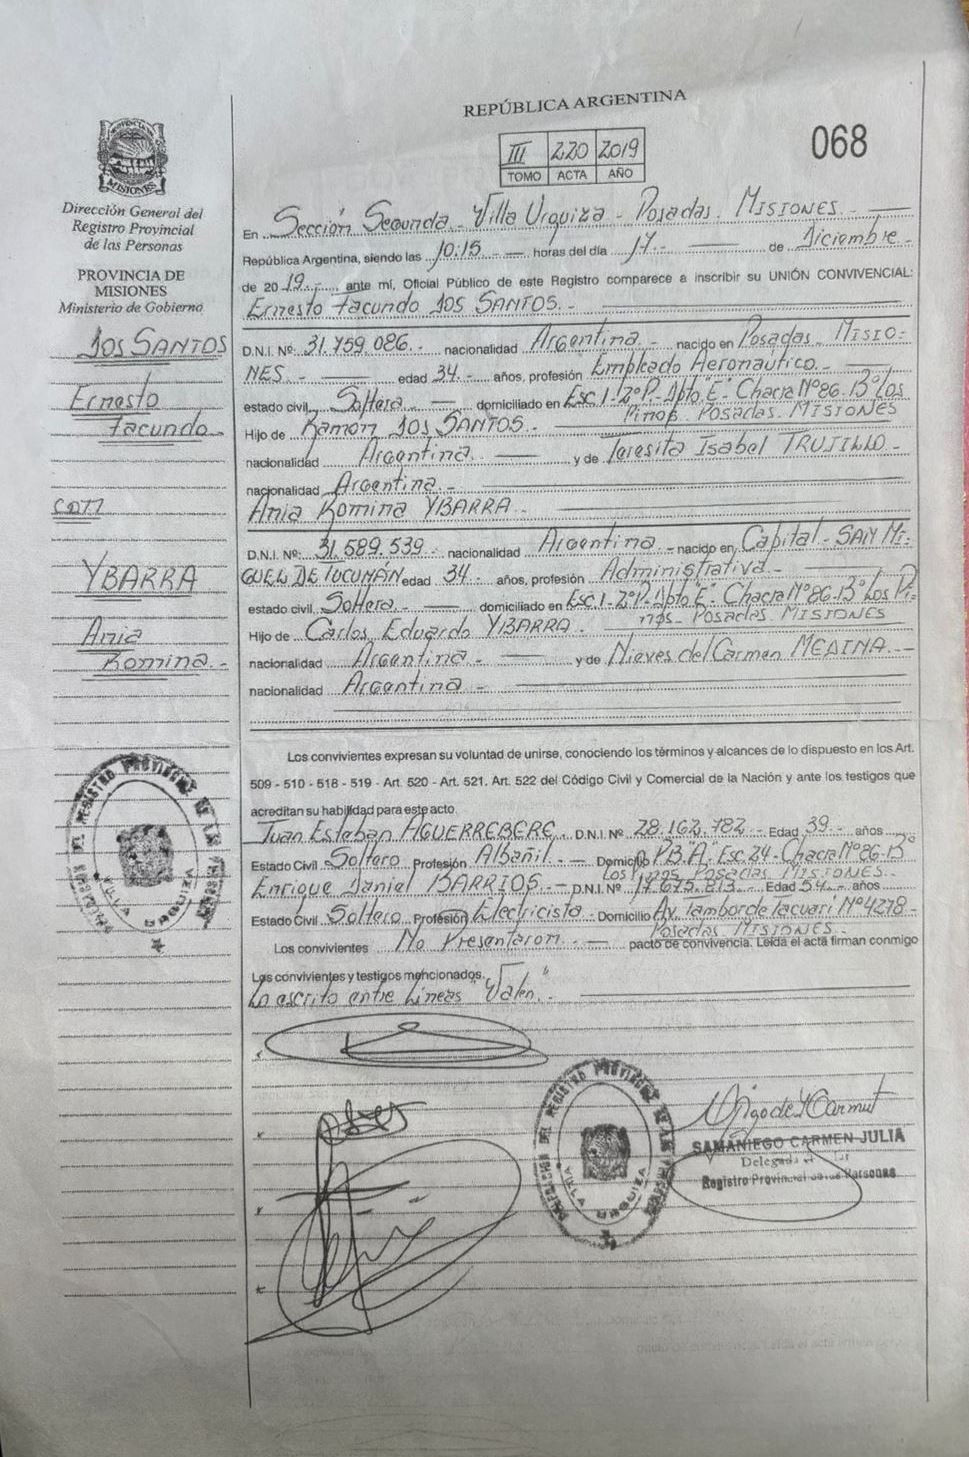 REPÚBLICA ARGENTINA
068
III 220 2019
TOMO ACTA AÑO
PROVINCIA DE MISIONES
Dirección General del
Registro Provincial
de las Personas
PROVINCIA DE
MISIONES
Ministerio de Gobierno
DOS SANTOS
Ernesto
Facundo.-
con
YBARRA
Ania
Romina.-
En Sección Segunda - Villa Urquiza - Posadas. MISIONES.-
República Argentina, siendo las 10:15.- horas del día 17.- de Diciembre.-
de 2019.- ante mí, Oficial Público de este Registro comparece a inscribir su UNIÓN CONVIVENCIAL:
Ernesto Facundo DOS SANTOS.-
D.N.I. Nº 31.759.086.- nacionalidad Argentina.- nacido en Posadas. MISIO-
NES.- edad 34.- años, profesión Empleado Aeronaútico.-
estado civil Soltera.- domiciliado en Esc. 1-2ºP-Dpto "E"- Chacra Nº86-Bº Los
Pinos. Posadas. MISIONES
Hijo de Ramón DOS SANTOS.-
nacionalidad Argentina.- y de Teresita Isabel TRUJILLO.-
nacionalidad Argentina.-
Ania Romina YBARRA.-
D.N.I. Nº: 31.589.539.- nacionalidad Argentina.- nacido en Capital- SAN MI-
GUEL DE TUCUMÁN edad 34.- años, profesión Administrativa.-
estado civil Soltera.- domiciliado en Esc. 1-2ºP-Dpto "E"- Chacra Nº86-Bº Los Pi-
nos- Posadas. MISIONES
Hijo de Carlos Eduardo YBARRA.-
nacionalidad Argentina.- y de Nieves del Carmen MEDINA.-
nacionalidad Argentina.-
Los convivientes expresan su voluntad de unirse, conociendo los términos y alcances de lo dispuesto en los Art.
509 - 510 - 518 - 519 - Art. 520 - Art. 521. Art. 522 del Código Civil y Comercial de la Nación y ante los testigos que
acreditan su habilidad para este acto.
Juan Esteban AGUERREBERE. D.N.I. Nº 28.162.782.- Edad 39.- años
Estado Civil Soltero Profesión Albañil.- Domicilio P.B."A" Esc. 24- Chacra Nº86-Bº
Los Pinos Posadas MISIONES.
Enrique Daniel BARRIOS.- D.N.I. Nº 17.675.813.- Edad 54.- años
Estado Civil Soltero Profesión Electricista.- Domicilio Av. Tambor de Tacuarí Nº4278-
Posadas MISIONES.-
Los convivientes No Presentaron.- pacto de convivencia. Leída el acta firman conmigo
Los convivientes y testigos mencionados.
Lo escrito entre Líneas "Valen."
VILLA URQUIZA
VILLA URQUIZA
SAMANIEGO CARMEN JULIA
Delegada
Registro Provincial de las Personas